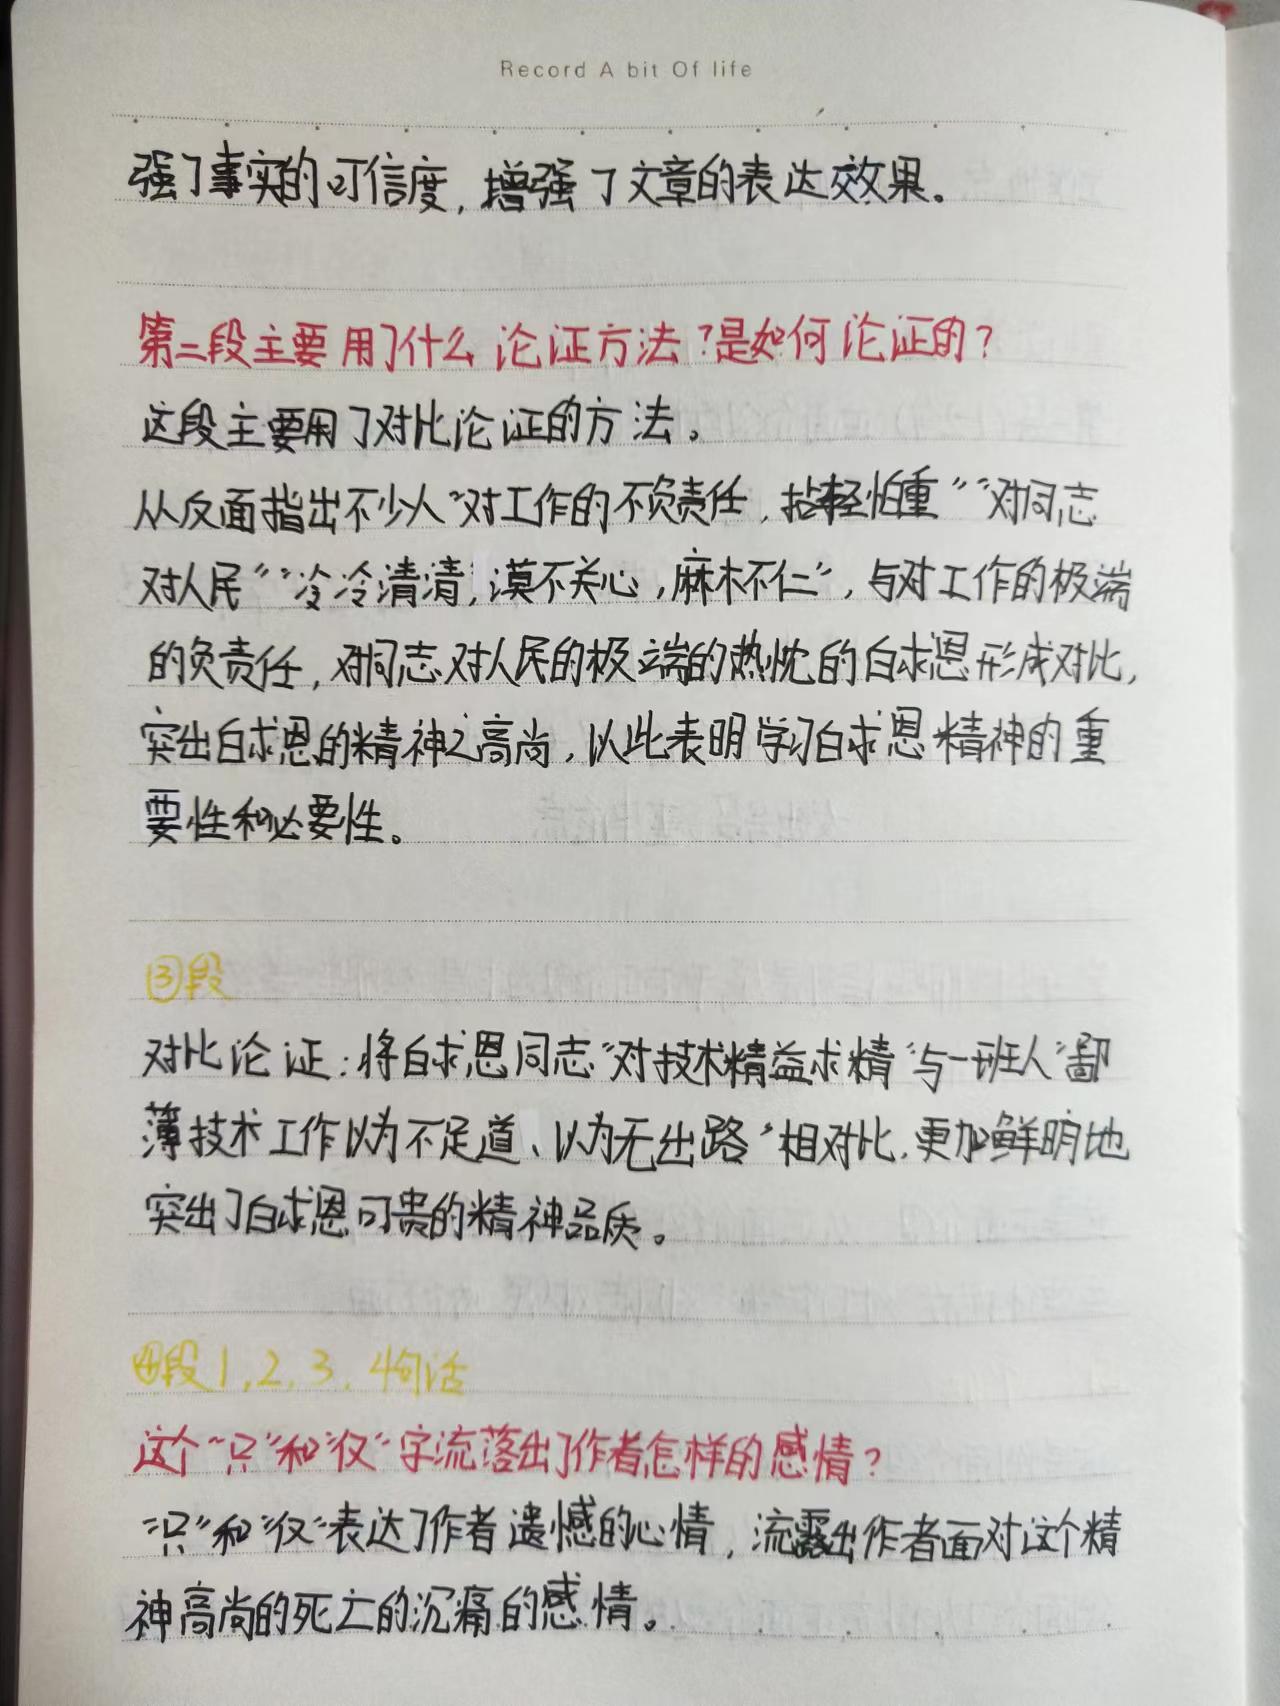 Record A bit Of life
强了事实的可信度，增强了文章的表达效果。
第二段主要用了什么论证方法？是如何论证的？
这段主要用了对比论证的方法。
从反面指出不少人“对工作的不负责任，拈轻怕重”“对同志
对人民”“冷冷清清，漠不关心，麻木不仁”，与对工作的极端
的负责任，对同志对人民的极端的热忱的白求恩形成对比，
突出白求恩的精神之高尚，以此表明学习白求恩精神的重
要性和必要性。
③段
对比论证：将白求恩同志“对技术精益求精”与一班人“鄙
薄技术工作以为不足道、以为无出路”相对比，更加鲜明地
突出了白求恩可贵的精神品质。
④段1，2，3，4句话
这个“只”和“仅”字流落出了作者怎样的感情？
“只”和“仅”表达了作者遗憾的心情，流露出作者面对这个精
神高尚的死亡的沉痛的感情。